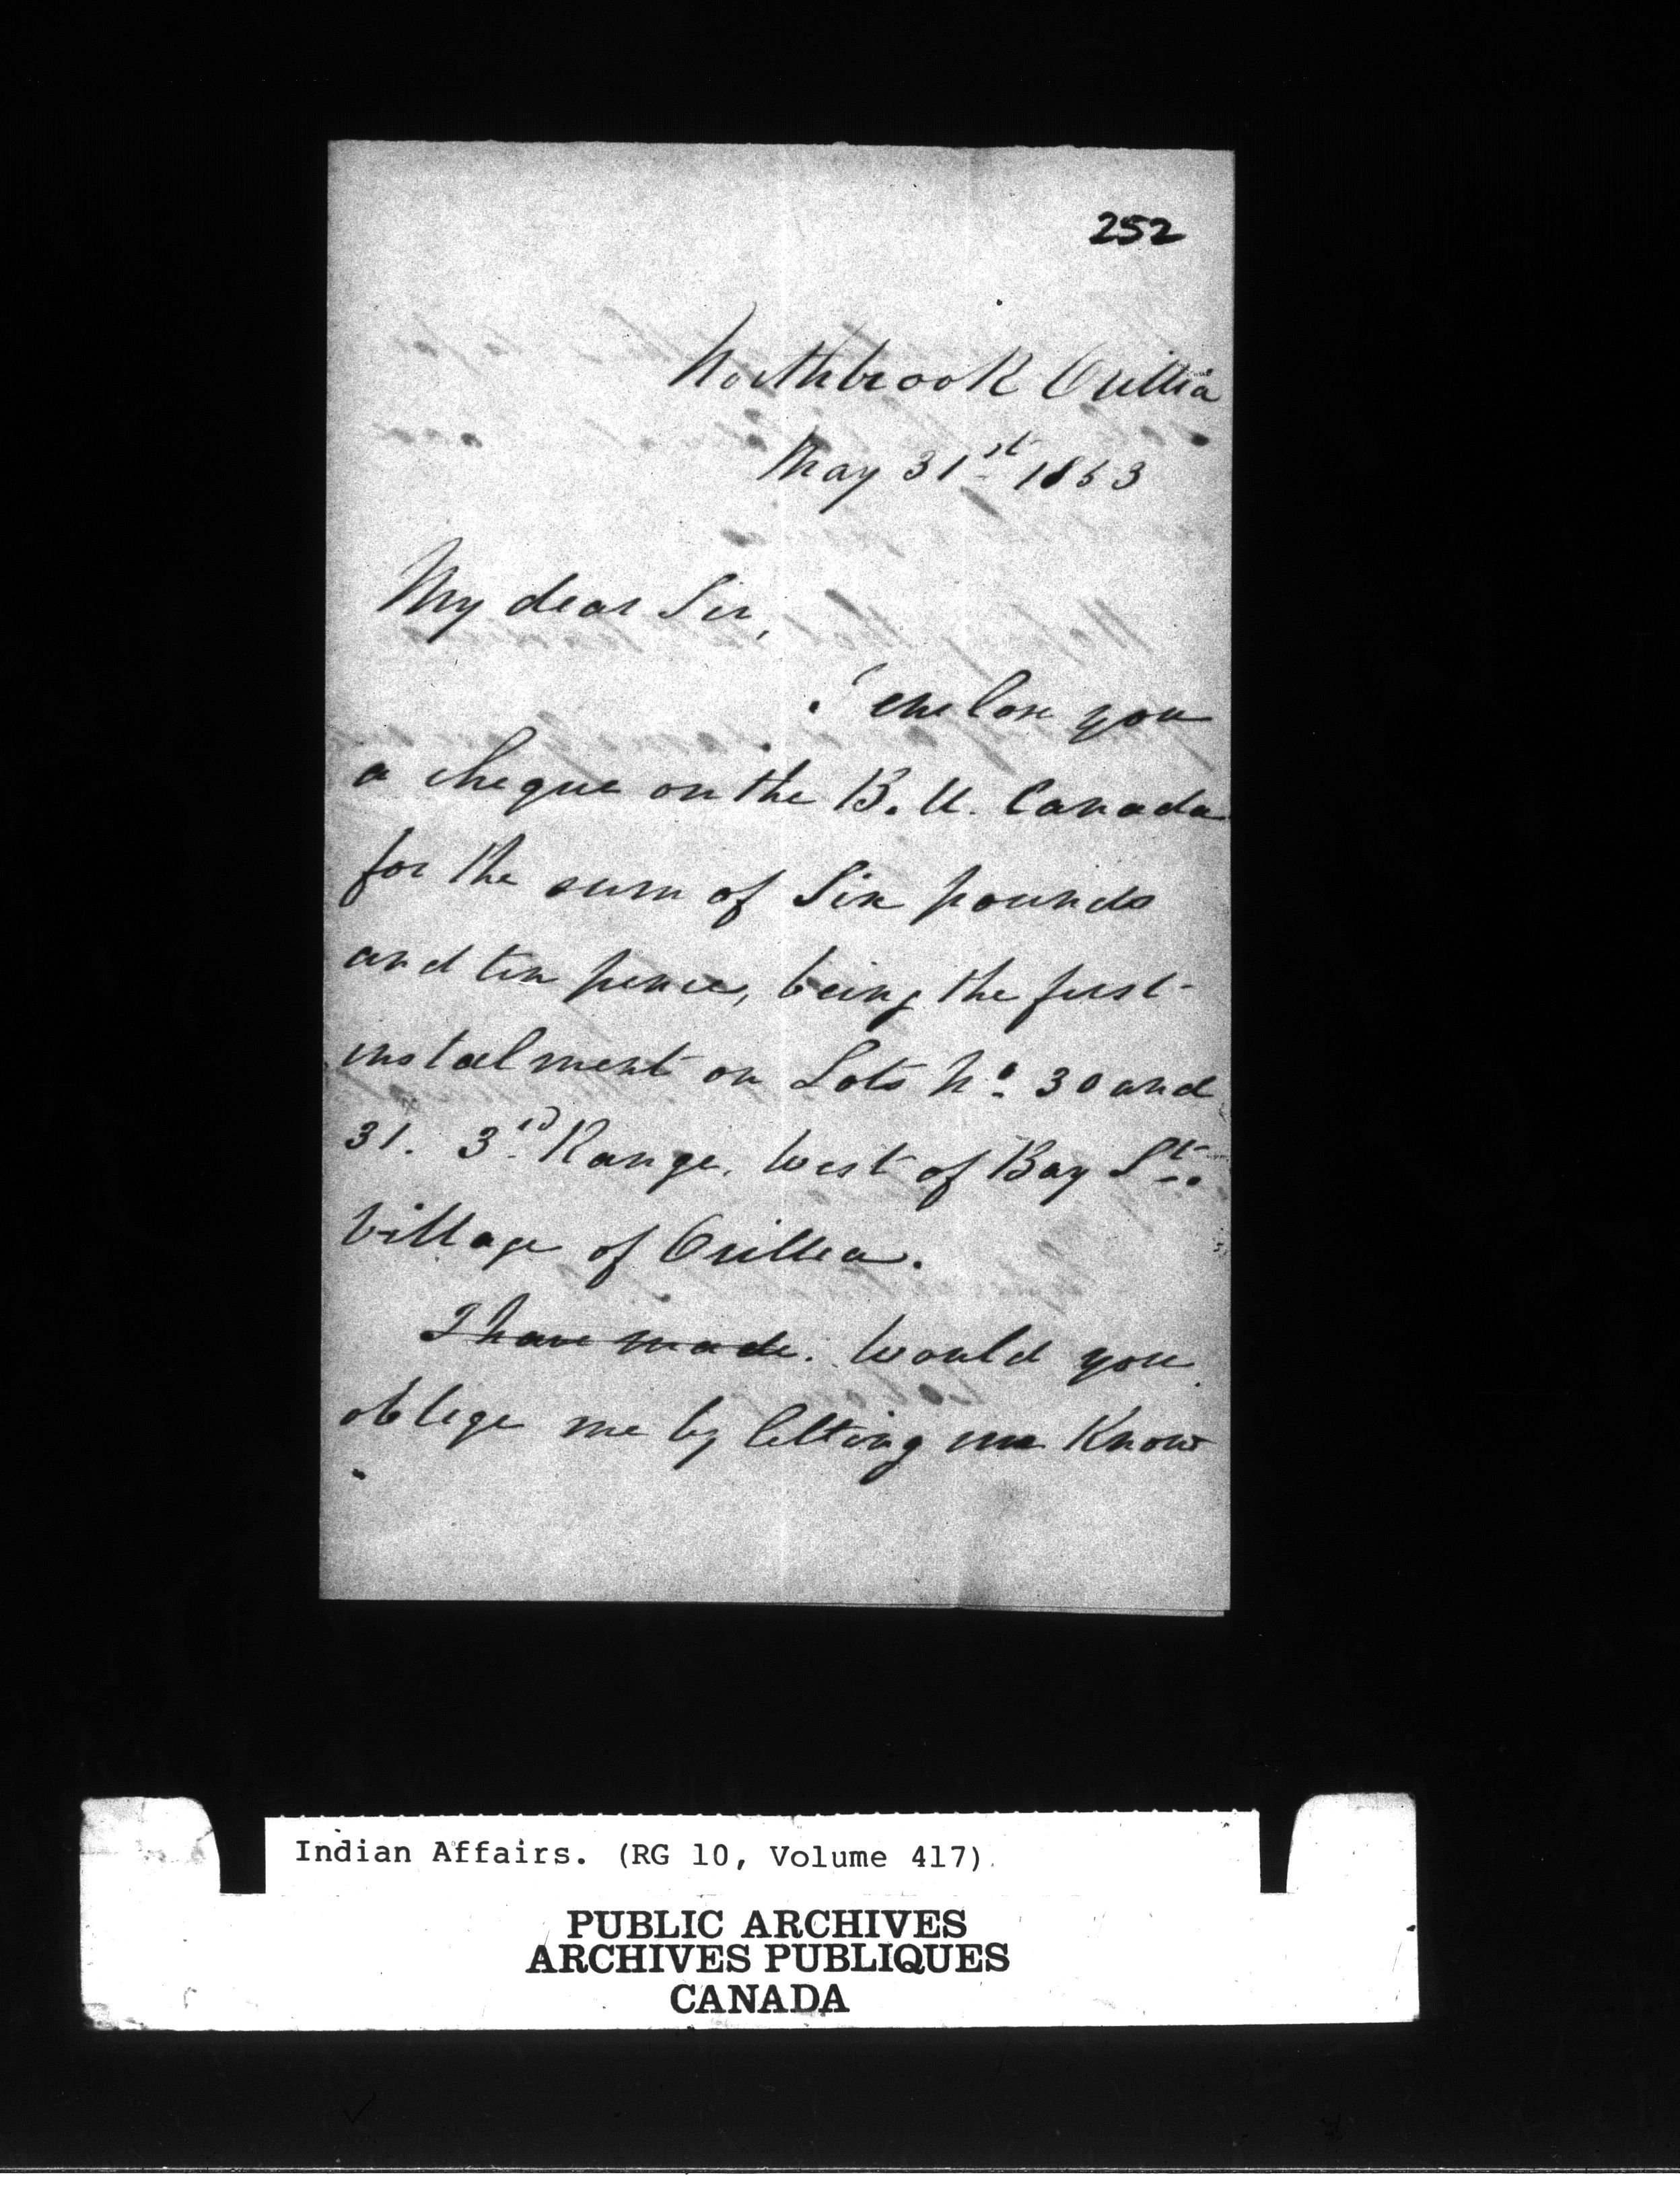 252
Northbrook Orillia
May 31st 1853
My dear Sir,
I enclose you
a cheque on the B. U. Canada
for the sum of Six pounds
and ten pence, being the first
instalment on Lots No. 30 and
31. 3rd Range. West of Bay St.
Village of Orillia.
I have made. Would you
oblige me by letting me Know
Indian Affairs. (RG 10, Volume 417)
PUBLIC ARCHIVES
ARCHIVES PUBLIQUES
CANADA